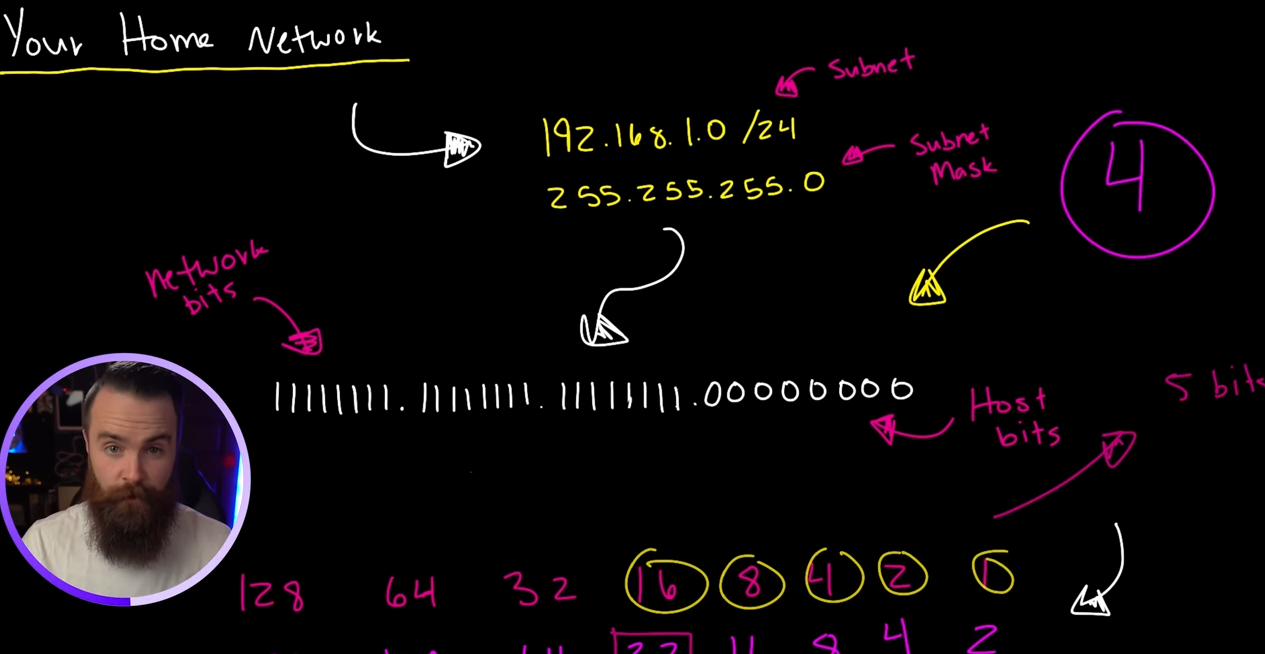 Your Home Network
Subnet
192.168.1.0 /24
Subnet
Mask
255.255.255.0
4
network
bits
11111111.11111111.11111111.00000000
Host
bits
5 bits
128 64 32 16 8 4 2 1
8 4 2